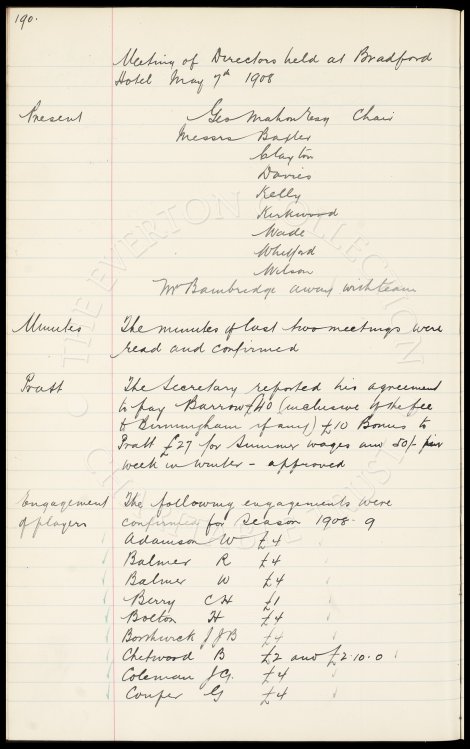 190.
Meeting of Directors held at Bradford
Hotel May 7th 1908
Present Geo Mahon Esq Chair
Messrs Baxter
Clayton
Davies
Kelly
Kirkwood
Wade
Whitford
Wilson
Mr Bainbridge away with team
Minutes The minutes of last two meetings were
read and confirmed
Pratt The Secretary reported his agreement
to pay Barrow £40 (inclusive of the fee
to Birmingham if any) £10 Bonus to
Pratt £27 for Summer wages and 50/- per
week in Winter - approved
Engagement The following engagements were
of players confirmed for Season 1908-9
Adamson W £4
Balmer R £4
Balmer W £4
Berry CH £1
Bolton H £4
Borthwick J JB £4
Chetwood B £2 and £2.10.0
Coleman JG. £4
Couper G £4
THE EVERTON COLLECTION